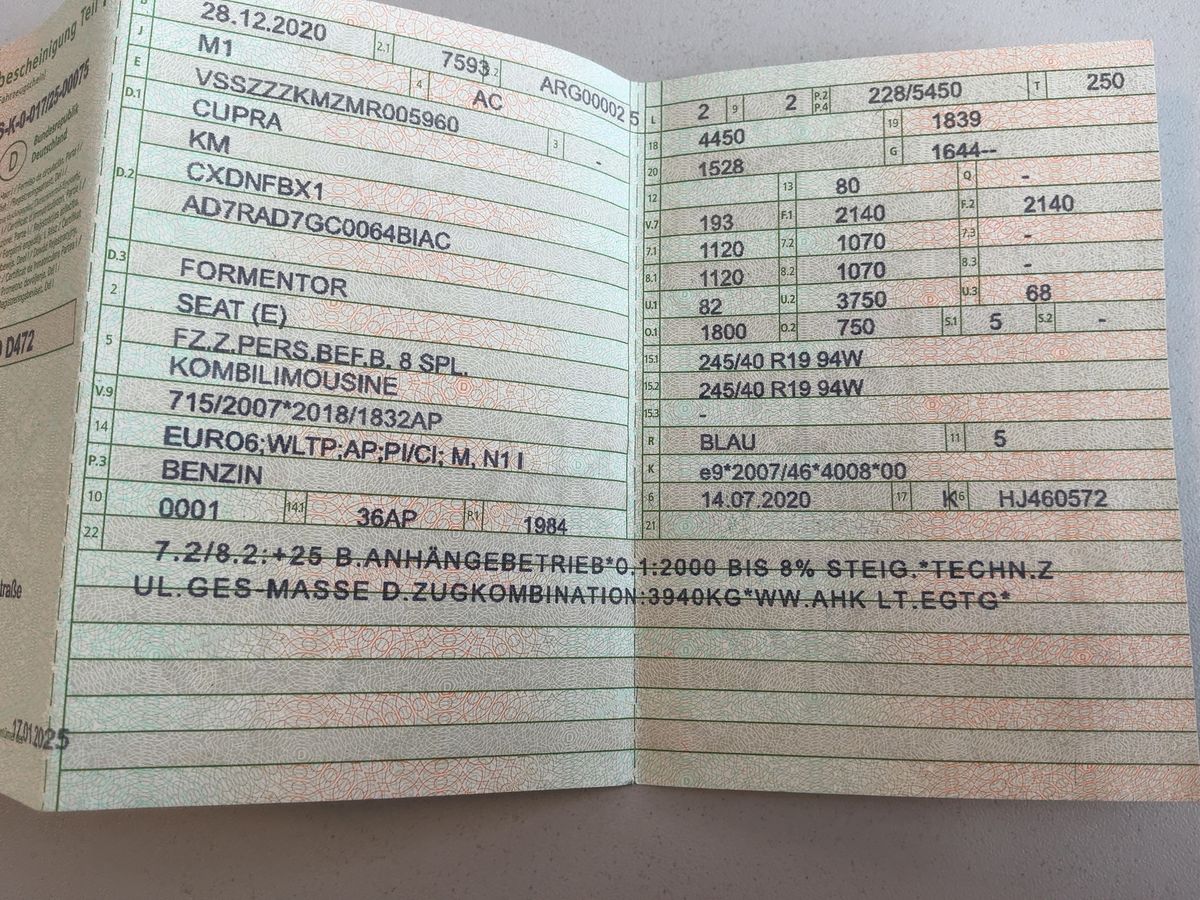 bescheinigung Teil
6-K-0-017/25-00075
D
Bundesrepublik
Deutschland
D472
traße
17.01.2025
B 28.12.2020 2.1 7593 2.2 ARG00002 5
J M1 4 AC
E VSSZZZKMZMR005960 3 -
D.1 CUPRA
D.2 KM
CXDNFBX1
AD7RAD7GC0064BIAC
D.3 FORMENTOR
2 SEAT (E)
5 FZ.Z.PERS.BEF.B. 8 SPL.
KOMBILIMOUSINE
V.9 715/2007*2018/1832AP
14 EURO6;WLTP;AP;PI/CI; M, N1 I
P.3 BENZIN
10 0001 14.1 36AP P.1 1984
L 2 9 2 P.2 P.4 228/5450 T 250
18 4450 19 1839
20 1528 G 1644--
12 13 80 Q -
V.7 193 F.1 2140 F.2 2140
7.1 1120 7.2 1070 7.3 -
8.1 1120 8.2 1070 8.3 -
U.1 82 U.2 3750 U.3 68
O.1 1800 O.2 750 S.1 5 S.2 -
15.1 245/40 R19 94W
15.2 245/40 R19 94W
15.3 -
R BLAU 11 5
K e9*2007/46*4008*00
6 14.07.2020 17 K 16 HJ460572
21
22 7.2/8.2:+25 B.ANHÄNGEBETRIEB*O.1:2000 BIS 8% STEIG.*TECHN.Z
UL.GES-MASSE D.ZUGKOMBINATION:3940KG*WW.AHK LT.EGTG*